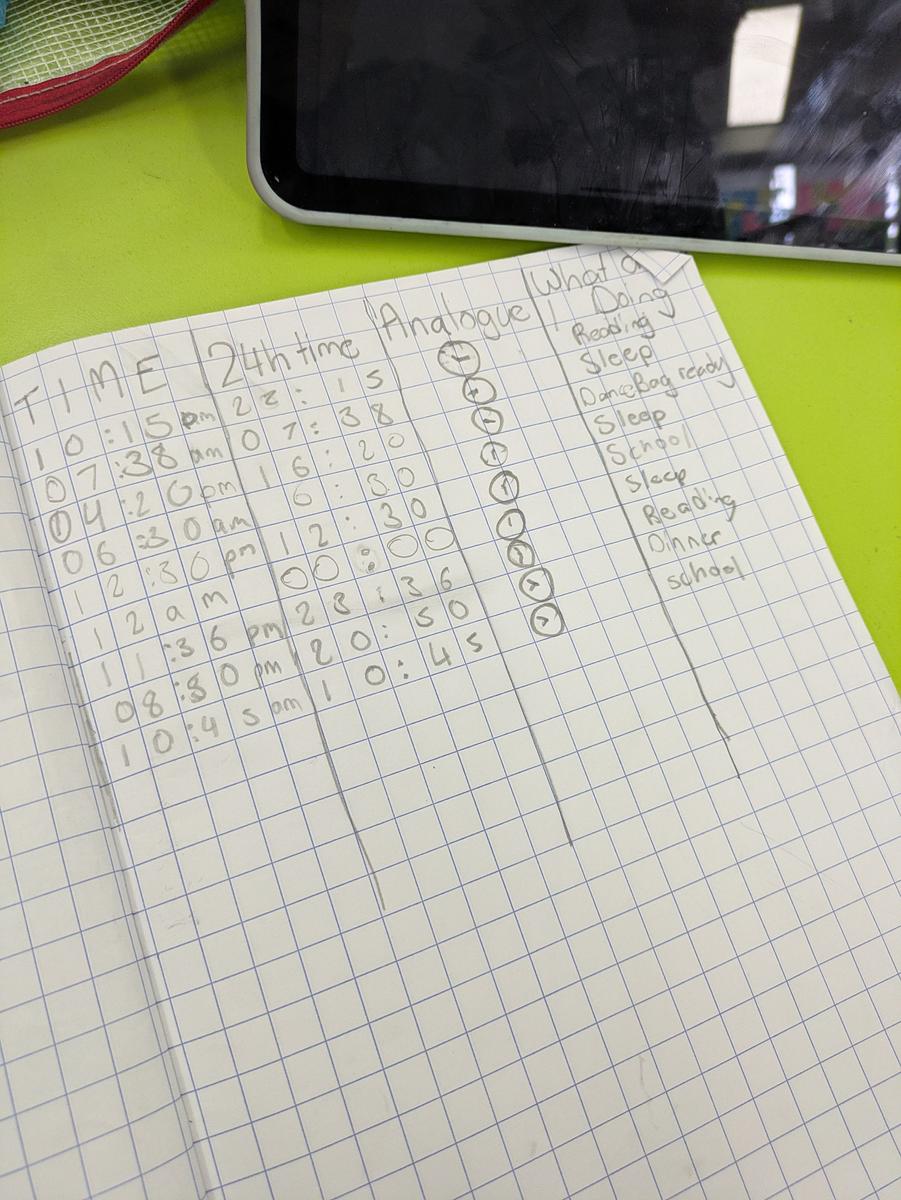 TIME 24h time Analogue What a
I Doing
10:15 pm 22:15 Reading
07:38 am 07:38 Sleep
04:20pm 16:20 Dance Bag ready
06:30am 6:30 Sleep
12:30pm 12:30 School
12am 00:00 Sleep
11:36 pm 23:36 Reading
08:50 pm 20:50 Dinner
10:45am 10:45 school